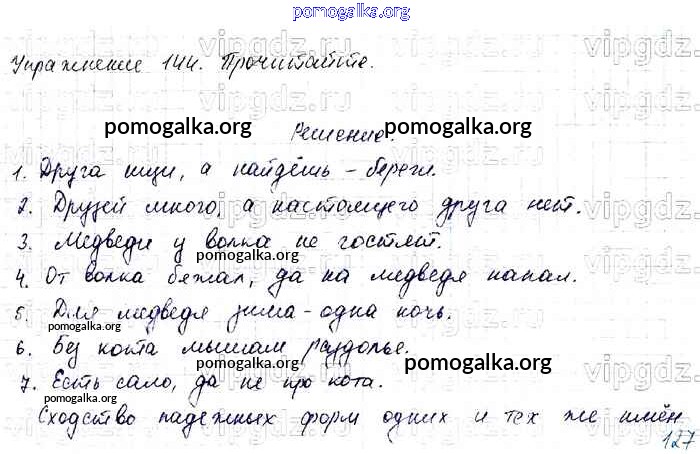 pomogalka.org
Упражнение 144. Прочитайте.
vipgdz.ru
pomogalka.org
Решение.
1. Друга ищи, а найдёшь - береги.
2. Друзей много, а настоящего друга нет.
3. Медведи у волка не гостят.
pomogalka.org
4. От волка бежал, да на медведя напал.
5. Для медведя зима - одна ночь.
pomogalka.org
6. Без кота мышам раздолье.
pomogalka.org
7. Есть сало, да не про кота.
pomogalka.org
Сходство падежных форм одних и тех же имён
pomogalka.org
127